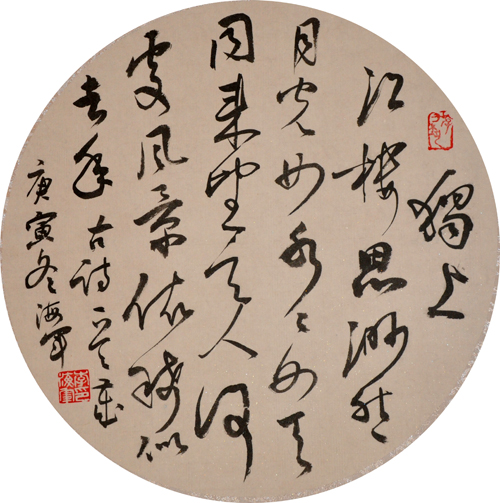 獨上
江樓思渺然
月光如水々如天
同来望月人何
處風景依稀似
去年 古诗一首
庚寅冬海军